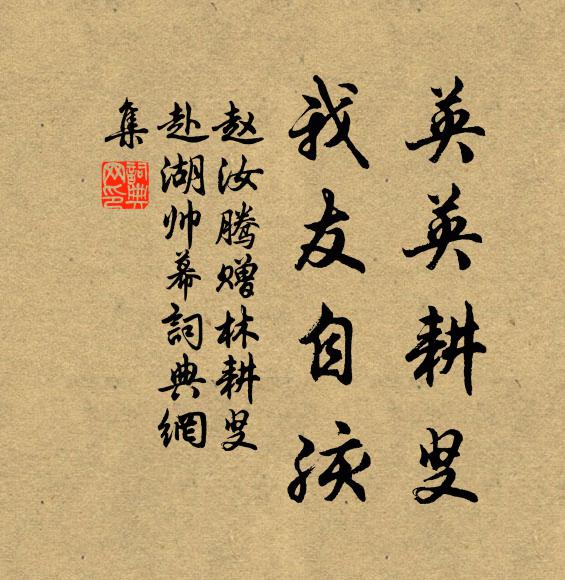 英英耕叟
我友自孩
赵汝腾赠林耕叟
赴湖帅幕詞典網
集
詞典
网印